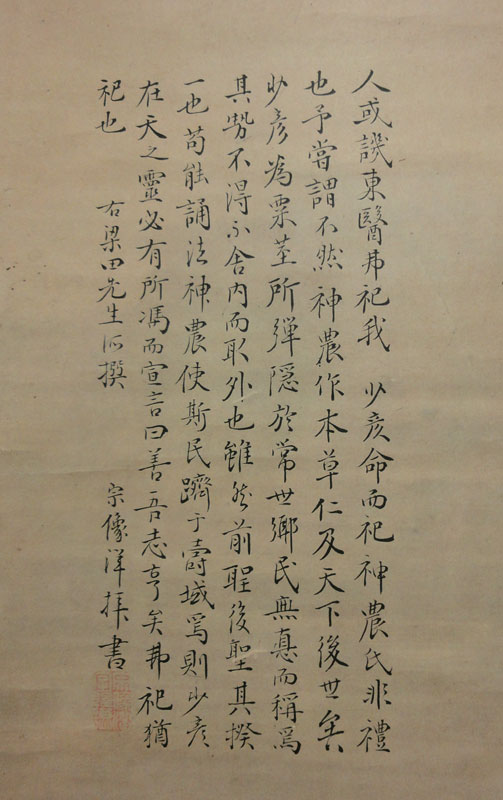 人或譏東醫弗祀我　少彥命而祀神農氏非禮
也予嘗謂不然神農作本草仁及天下後世矣
少彥為粟莖所弾隠於常世鄉民無悳而稱焉
其勢不得不舍內而取外也雖然前聖後聖其揆
一也苟能誦法神農使斯民躋于壽域焉則少彥
在天之靈必有所馮而宣言曰善吾志亨矣弗祀猶
祀也　右梁田先生所撰　宗像洋拜書